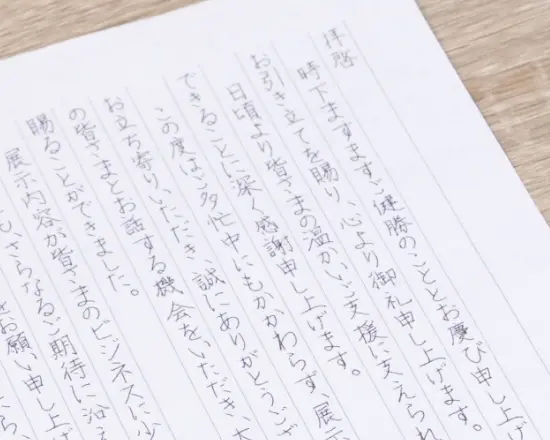 拝啓
時下ますますご健勝のこととお慶び申し上げ
お引き立てを賜り、心より御礼申し上げます。
日頃より皆さまの温かいご支援に支えられ
できることに深く感謝申し上げます。
この度はご多忙中にもかかわらず、展示
お立ち寄りいただき、誠にありがとうござ
の皆さまとお話する機会をいただき、
賜ることができました。
展示内容が皆さまのビジネスに少
さらなるご期待に沿え
お願い申し上げ